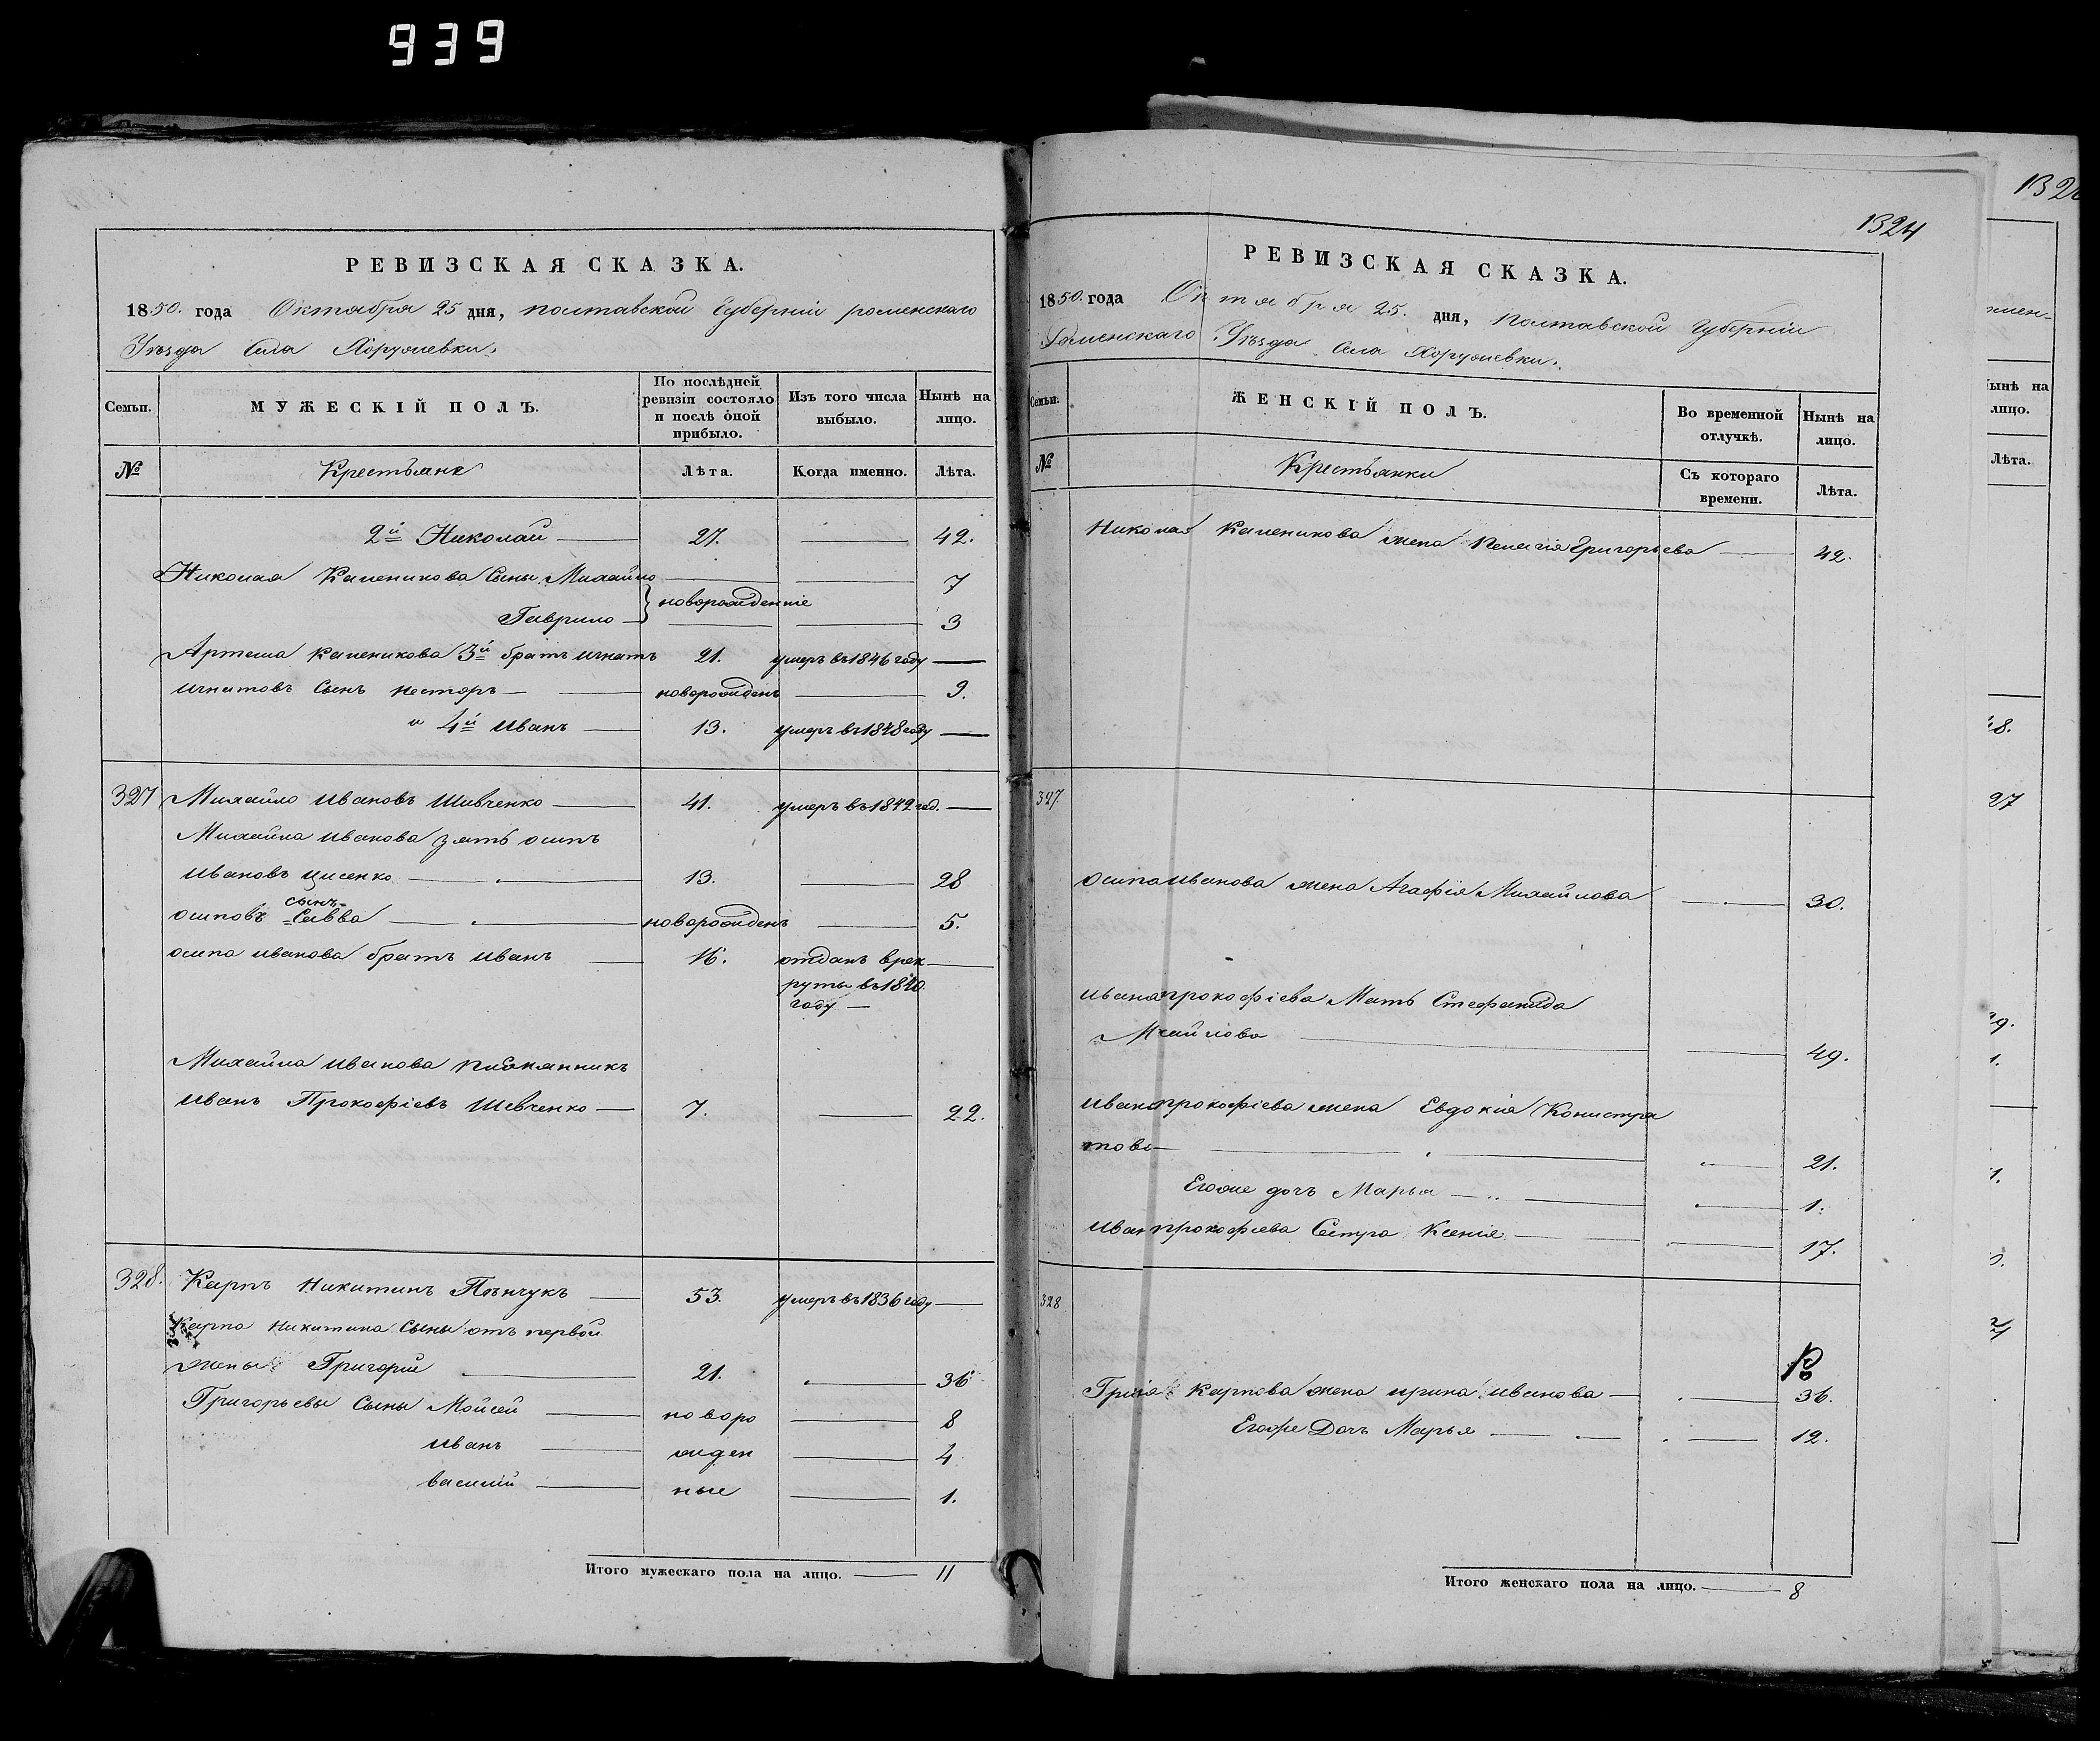 939
РЕВИЗСКАЯ СКАЗКА.
1850. года Октября 25 дня, полтавской Губерніи роменскаго
Уѣзда Села Хоружевки.
Семьи. МУЖЕСКІЙ ПОЛЪ. По послѣдней ревизіи состояло и послѣ оной прибыло. Изъ того числа выбыло. Нынѣ на лицо.
№ Крестьяне Лѣта. Когда именно. Лѣта.
2й Николай 27. 42.
Николая Каленикова Сыны Михайло 7
новорожденніе
Гаврило 3
Артема Каленикова 3й братъ игнатъ 21. умеръ въ 1846 году
игнатовъ Сынъ несторъ новорожденъ 9.
и 4й Иванъ 13. умеръ въ 1848 году
327 Михайло Ивановъ Шевченко 41. умеръ въ 1842 год.
Михайла Иванова зять осипъ
Ивановъ 13. 28
сынъ
осиповъ Савва новорожденъ 5.
осипа иванова братъ иванъ 16. отданъ врек
руты въ 1840
году
Михайла иванова племянникъ
иванъ Прокофіевъ Шевченко 7. 22.
328. Карпъ Никитинъ 53. умеръ въ 1836 году
Карпа Никитина Сыны отъ первой
жены Григорій 21. 36
Григорьевы Сыны Мойсей новоро 8
иванъ жден 4
василій ные 1.
Итого мужескаго пола на лицо. 11
1324
РЕВИЗСКАЯ СКАЗКА.
1850. года Октября 25. дня, Полтавской Губерніи
Роменскаго Уѣзда Села Хоружевки.
Семьи. ЖЕНСКІЙ ПОЛЪ. Во временной отлучкѣ. Нынѣ на лицо.
№ Крестьянки Съ котораго времени. Лѣта.
Николая Каленикова жена Пелагія Григорьева 42.
327.
осипа иванова жена Агафія Михайлова 30.
ивана прокофіева Мать Стефанида
49.
ивана прокофіева жена Евдокія
това 21.
Егоже дочъ Марья 1.
иван прокофіева Сестра Ксенія 17.
328
Карпова жена ирина иванова 36.
Егоже Дочъ Марья 12.
Итого женскаго пола на лицо. 8
132
мен-
ынѣ на
лицо.
Лѣта.
8.
27
9.
1.
1.